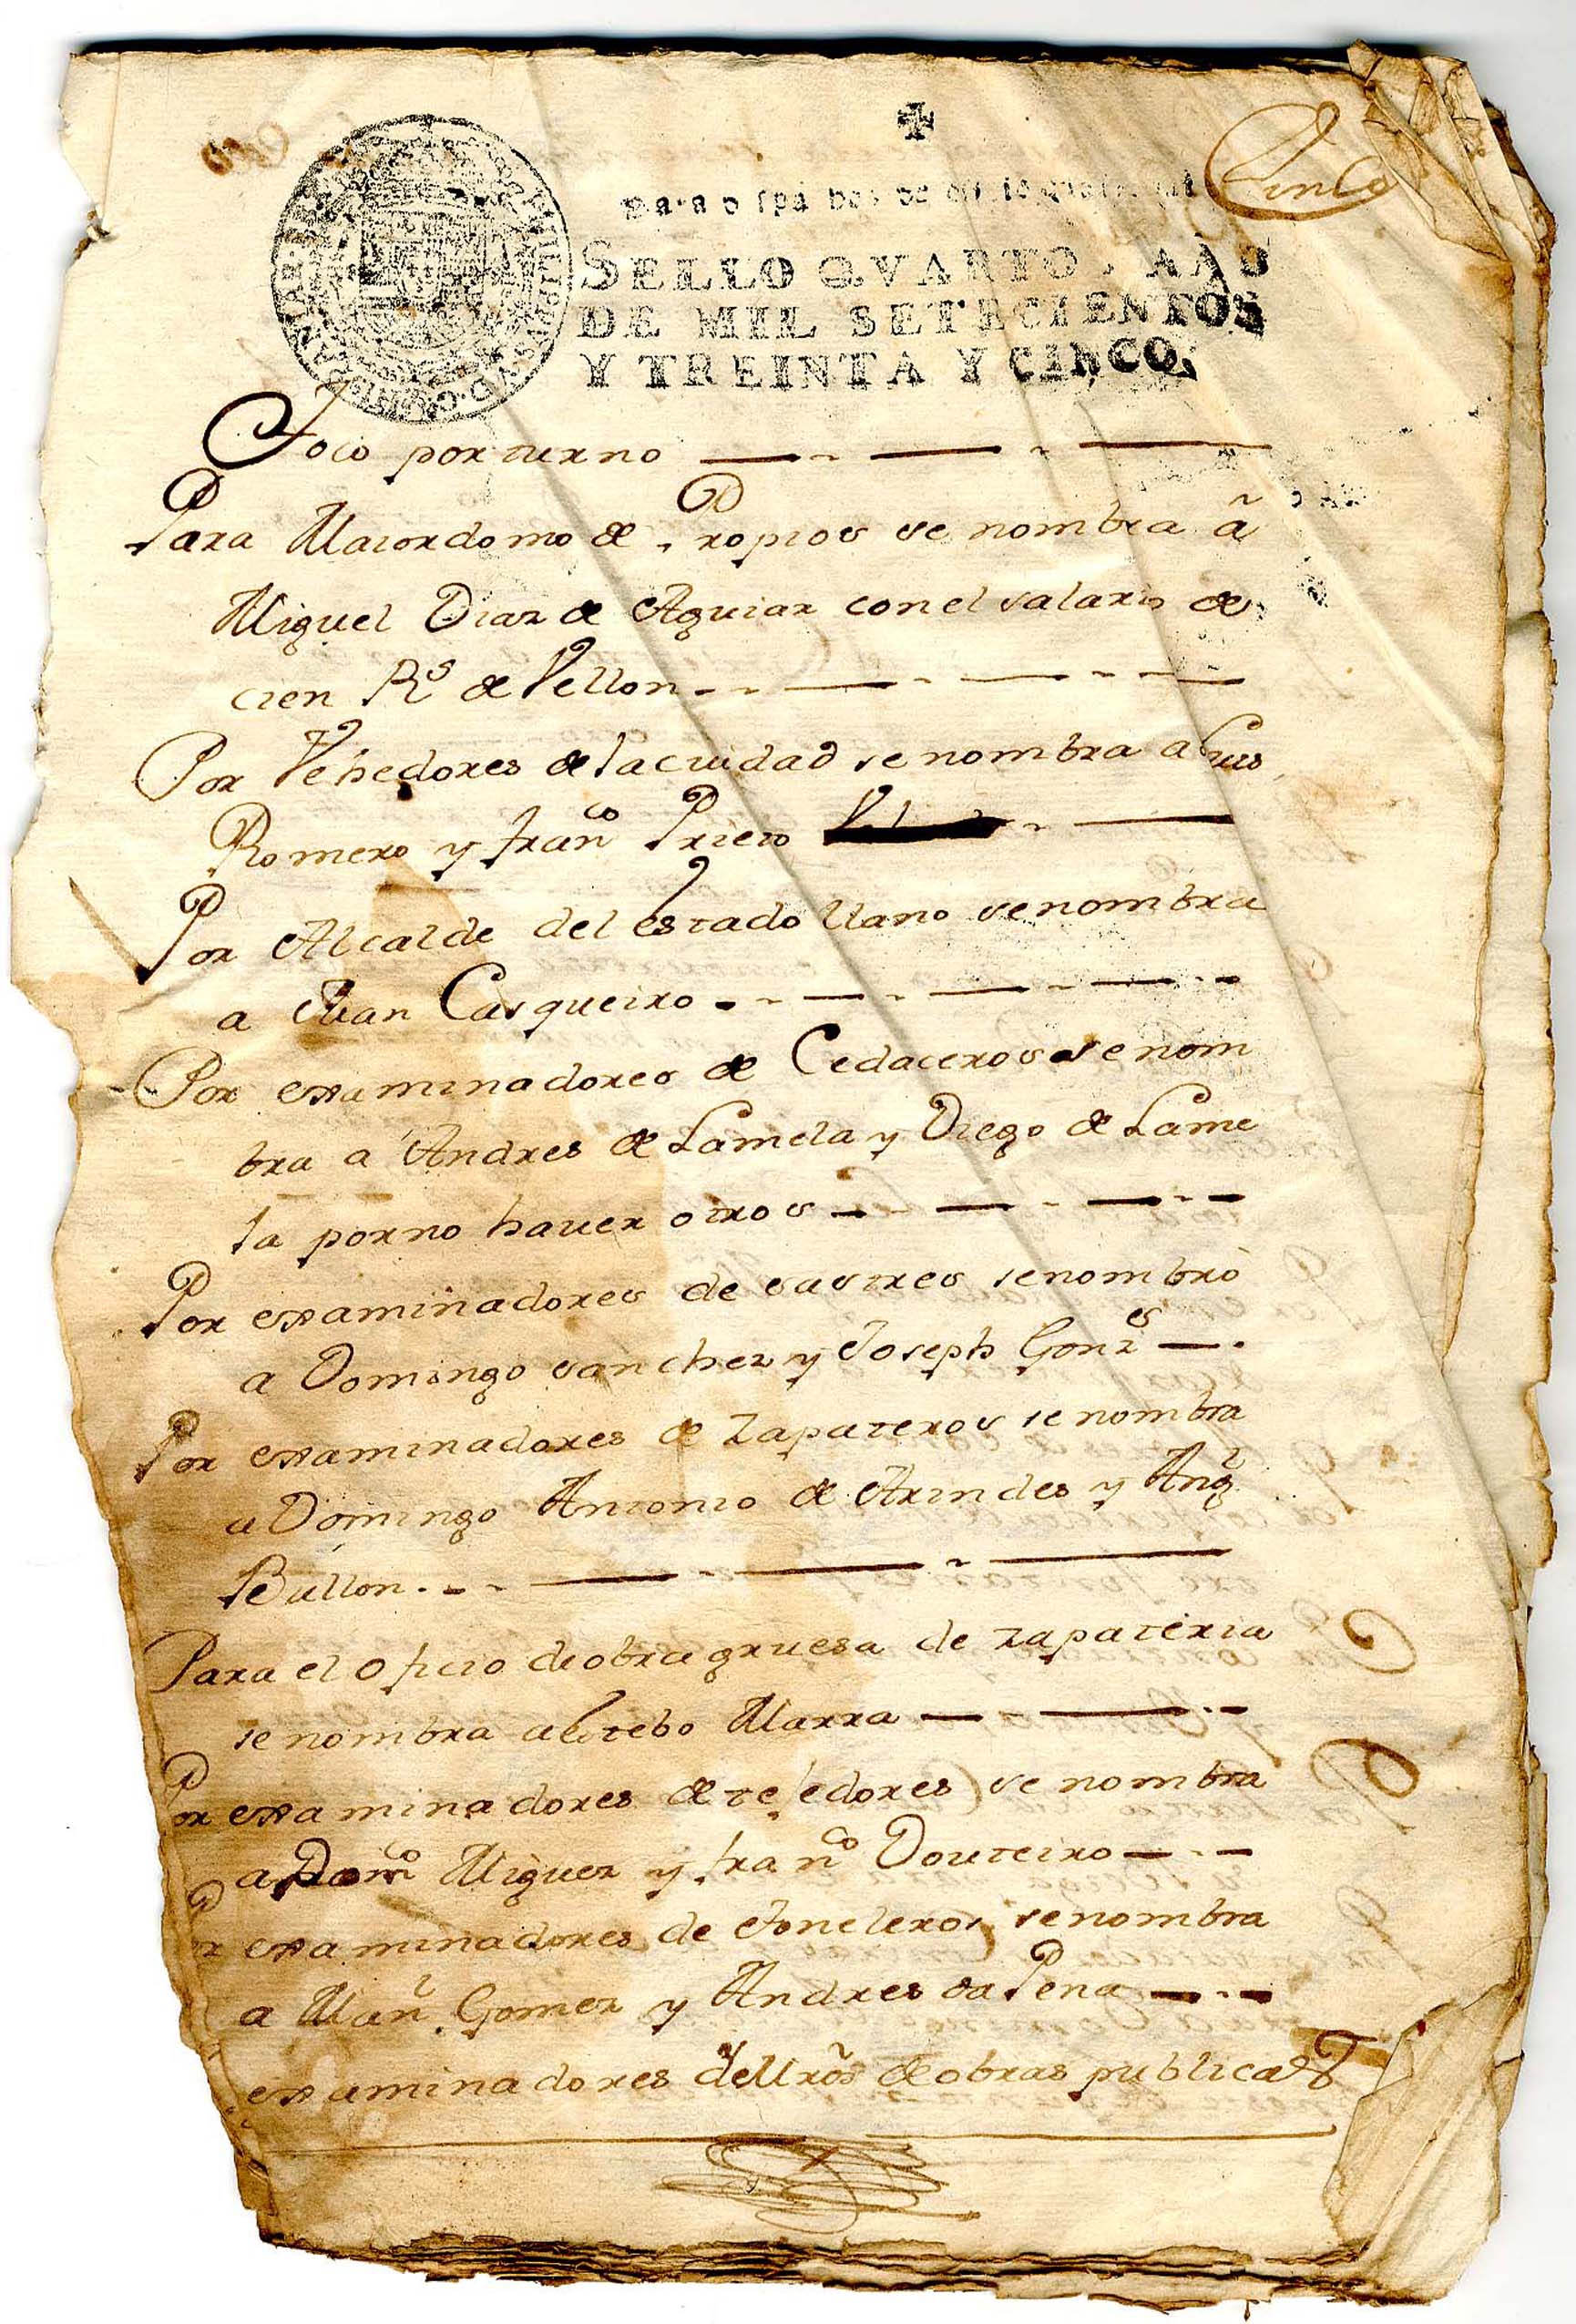 Cinco
Para d
SELLO QVARTO, AÑO
DE MIL SETECIENTOS
Y TREINTA Y CINCO.
Toco por turno
Para Maiordomo de Propios se nombra â
Miguel Diaz de Aguiar con el salario de
cien R.s de Vellon
Por Vehedores de la ciudad se nombra a Luis
Romero y fran.co Prieto
Por Alcalde del estado llano se nombra
a Juan Casqueiro
Por examinadores de Cedaceros se nom
bra a Andres de Lamela y Diego de Lame
la por no hauer otros
Por examinadores de sastres se nombrò
a Domingo sanchez y Joseph Gonz.s
Por examinadores de zapateros se nombra
a Domingo Antonio de Arindes y Ang.l
Bullon
Para el oficio de obra gruesa de zapateria
se nombra a Marra
Por examinadores de tejedores se nombra
a Dom.co Miguez y fran.co Douteiro
Por examinadores de toneleros se nombra
a Man.l Gomez y Andres da Pena
examinadores de Mrõs de obras publicas